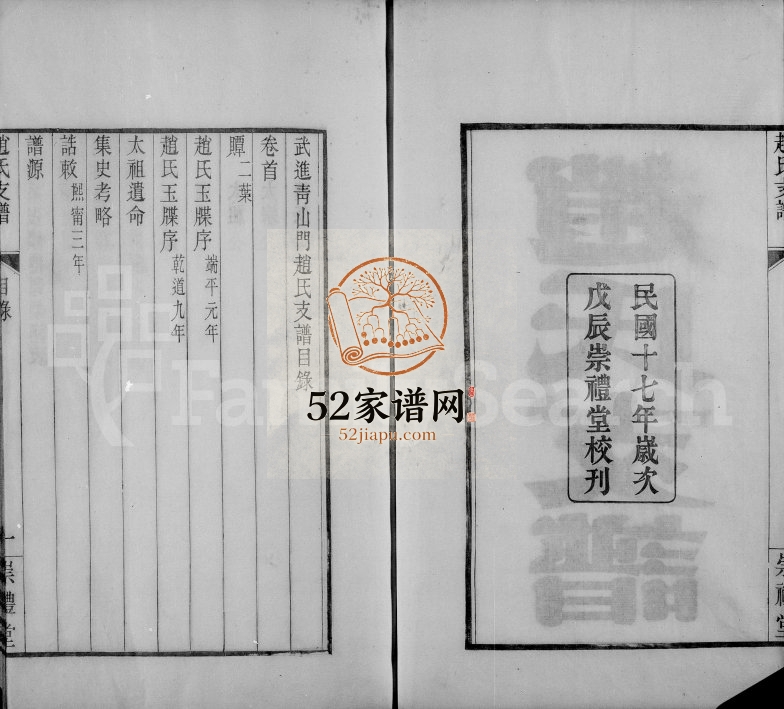 趙氏支譜
崇禮堂
民國十七年歲次
戊辰崇禮堂校刊
武進青山門趙氏支譜目錄
卷首
贉二葉
趙氏玉牒序 端平元年
趙氏玉牒序 乾道九年
太祖遺命
集史考略
誥敕 熙甯三年
譜源
趙氏支譜
目錄
一
崇禮堂
52家谱网
52jiapu.com
FamilySearch